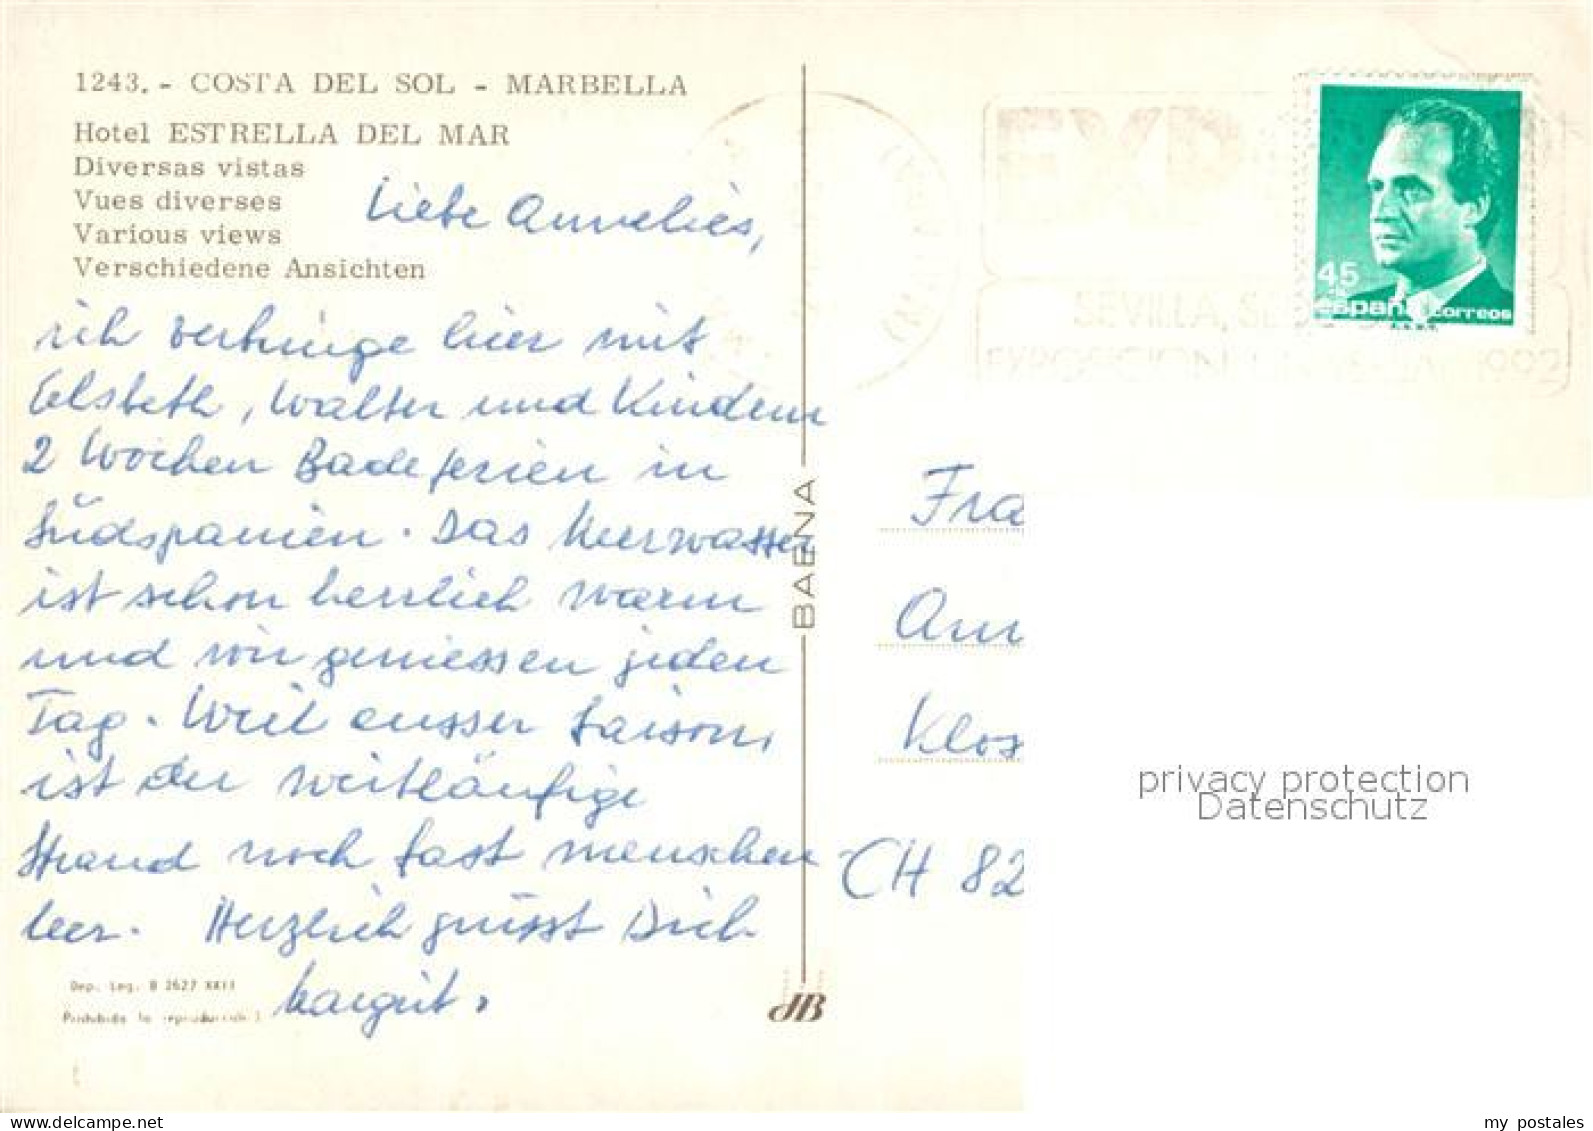 1243. - COSTA DEL SOL - MARBELLA
Hotel ESTRELLA DEL MAR
Diversas vistas
Vues diverses
Various views
Verschiedene Ansichten
Liebe Annelies,
ich verbringe hier mit
Elsbeth, Walter und Kindern
2 Wochen Badeferien in
Südspanien. Das Meerwasser
ist schon herrlich warm
und wir geniessen jeden
Tag. Weil ausser Saison,
ist der weitläufige
Strand noch fast menschen
leer. Herzlich grüsst Dich
Margrit.
Dep. Leg. B 2627 XXII
Prohibida la reproducción
BAENA
JB
EXPO
SEVILLA, SE
EXPOSICION UNIVERSAL 1992
45
españa correos
Fra
Ann
Klos
CH 82
privacy protection
Datenschutz
my postales